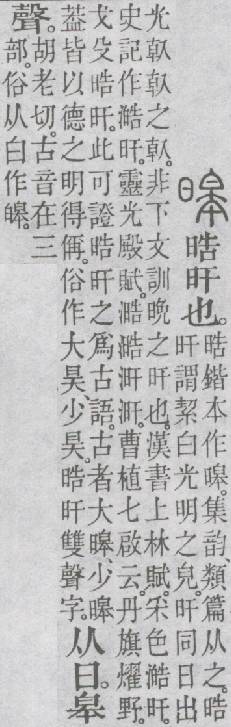 暤 晧旰也。晧鍇本作暤。集韵、類篇从之。晧
旰謂絜白光明之皃。旰同日出
光倝倝之倝。非下文訓晚之旰也。漢書上林賦。采色澔旰。
史記作澔旰。靈光殿賦。澔澔涆涆。曹植七啟云。丹旗燿野。
戈殳晧旰。此可證晧旰之爲古語。古者大暤、少暤
葢皆以德之明得偁。俗作大昊、少昊。晧旰雙聲字。从日。皋
聲。胡老切。古音在三
部。俗从白作皞。